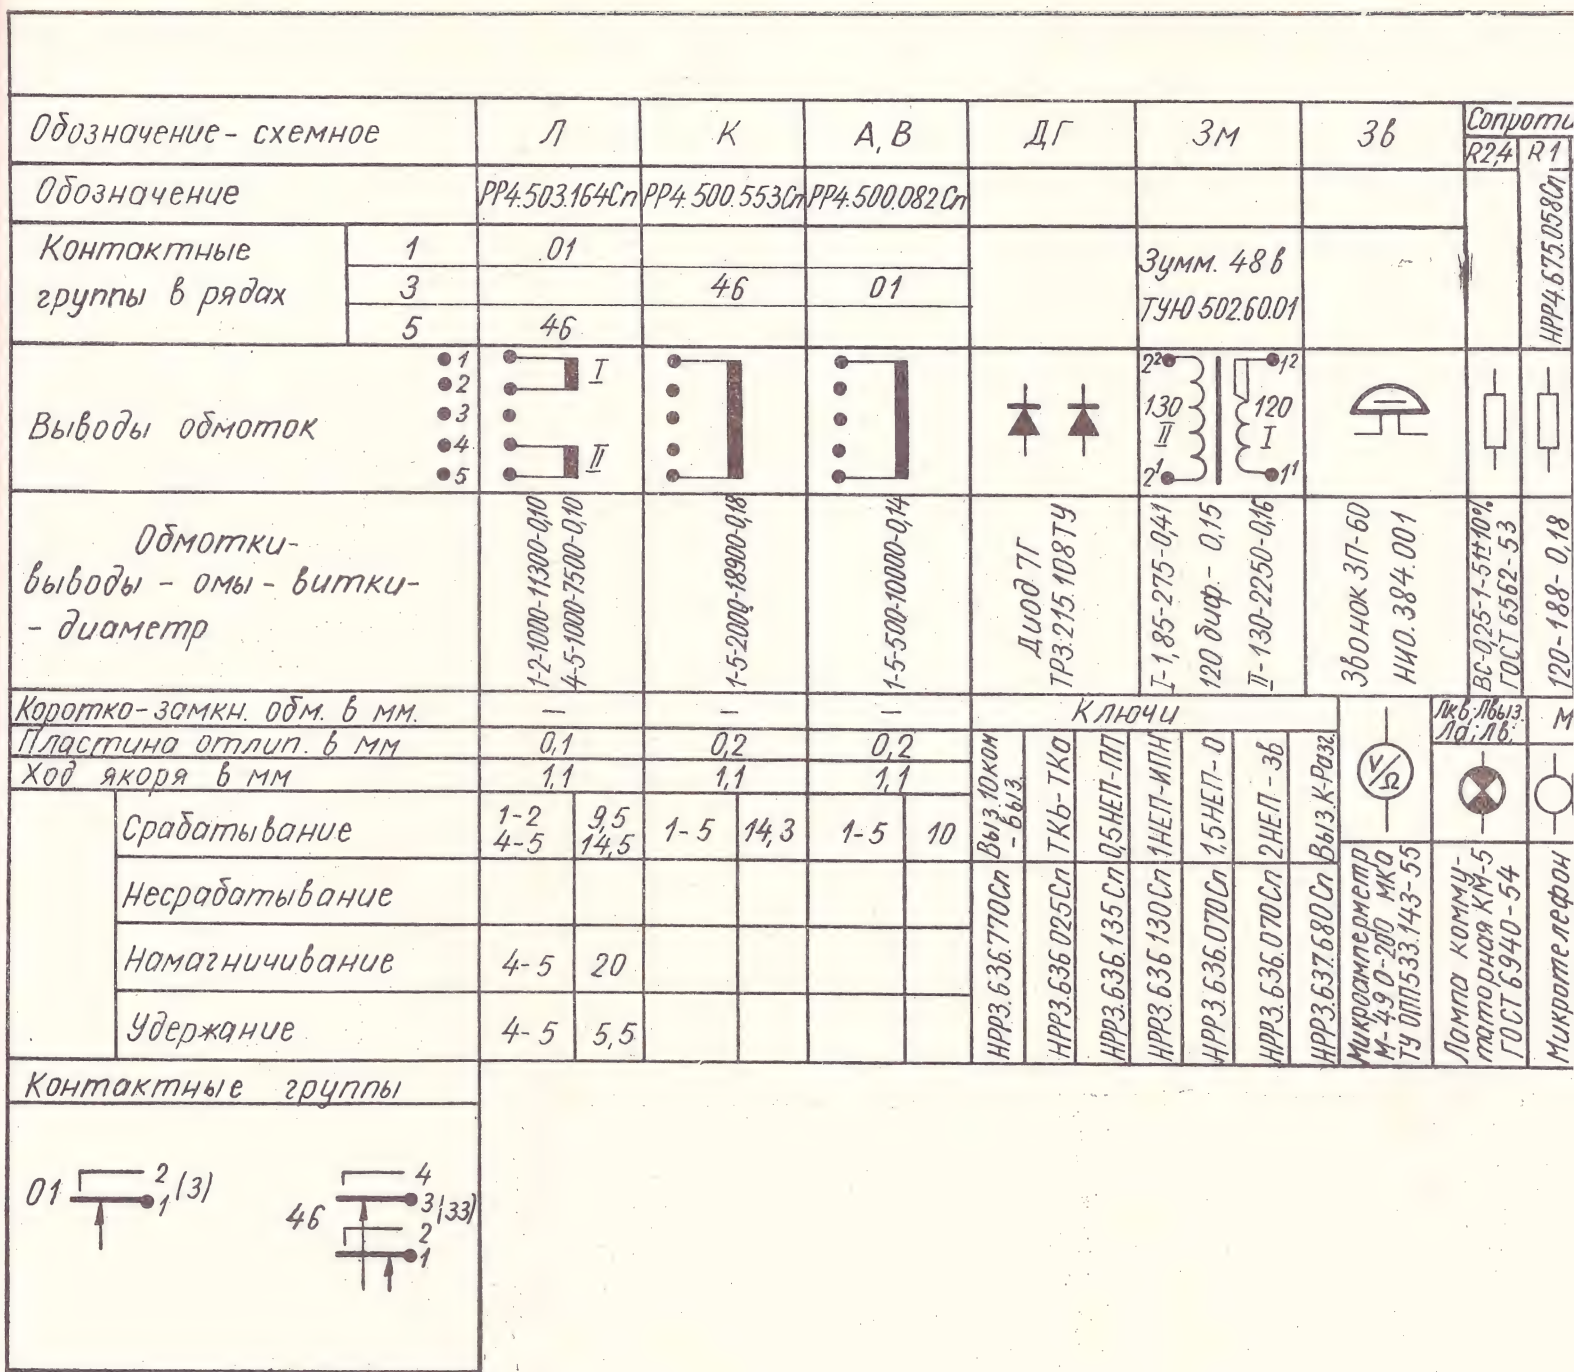 Обозначение - схемное Л К А, В ДГ Зм Зв Сопроти
R2,4 R1
Обозначение РР4.503.164Сп РР4.500.553Сп РР4.500.082Сп
НРР4.675.058Сп
Контактные группы в рядах
1 01
3 46 01
5 46
Зумм. 48в
ТУЮ.502.60.01
Выводы обмоток
1
2
3
4
5
I
II
2² 1²
130 120
II I
2¹ 1¹
Обмотки-
выводы - омы - витки-
- диаметр
1-2-1000-11300-0,10
4-5-1000-7500-0,10
1-5-2000-18900-0,18
1-5-500-10000-0,14
Диод 7Г
ТР3.215.108ТУ
I-1,85-275-0,41
120 биф.- 0,15
II-130-2250-0,16
Звонок ЗП-60
НИ0.384.001
ВС-0,25-1-51±10%
ГОСТ 6562-53
120-188-0,18
Коротко-замкн. обм. в мм. — — —
Пластина отлип. в мм 0,1 0,2 0,2
Ход якоря в мм 1,1 1,1 1,1
Срабатывание
1-2 9,5
4-5 14,5
1-5 14,3
1-5 10
Несрабатывание
Намагничивание 4-5 20
Удержание 4-5 5,5
Ключи
Выз.10ком
- Выз.
НРР3.636.770Сп
ТКЬ-ТКа
НРР3.636.025Сп
0,5НЕП-ПП
НРР3.636.135Сп
1НЕП-ИПН
НРР3.636.130Сп
1,5НЕП-0
НРР3.636.070Сп
2НЕП-Зв
НРР3.636.070Сп
Выз.К-Разг.
НРР3.637.680Сп
V/Ω
Микроамперметр
М-49 0-200 мка
ТУ ОПП533.143-55
Лкв; Лвыз.
Ла; Лв.
Лампа комму-
таторная КМ-5
ГОСТ 6940-54
М
Микротелефон
Контактные группы
01 2 (3)
1
46 4
3 (33)
2
1